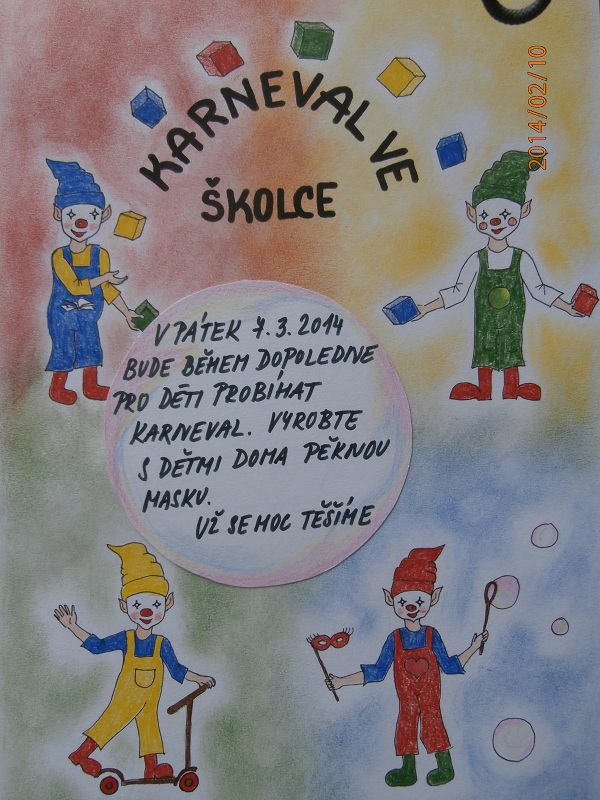 KARNEVAL VE
ŠKOLCE
V PÁTEK 7.3.2014
BUDE BĚHEM DOPOLEDNE
PRO DĚTI PROBÍHAT
KARNEVAL. VYROBTE
S DĚTMI DOMA PĚKNOU
MASKU.
UŽ SE MOC TĚŠÍME
2014/02/10